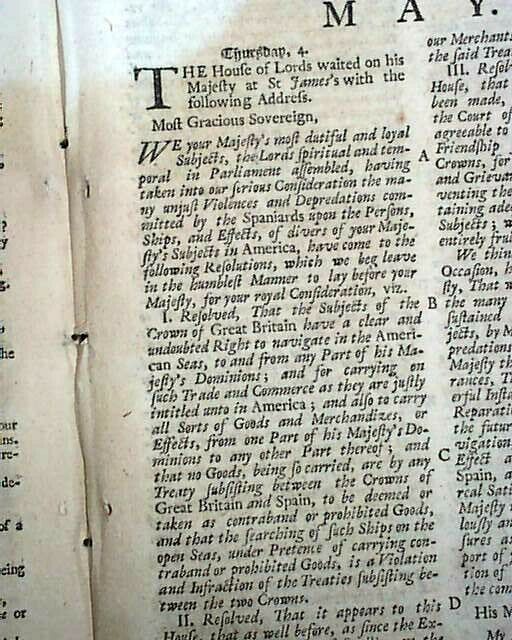 MAY.
Thursday, 4.
THE House of Lords waited on his
Majesty at St James's with the
following Address.
Most Gracious Sovereign,
WE your Majesty's most dutiful and loyal
Subjects, the Lords spiritual and tem-
poral in Parliament assembled, having
taken into our serious Consideration the ma-
ny unjust Violences and Depredations com-
mitted by the Spaniards upon the Persons,
Ships, and Effects, of divers of your Maje-
sty's Subjects in America, have come to the
following Resolutions, which we beg leave
in the humblest Manner to lay before your
Majesty, for your royal Consideration, viz.
I. Resolved, That the Subjects of the
Crown of Great Britain have a clear and
undoubted Right to navigate in the Ameri-
can Seas, to and from any Part of his Ma-
jesty's Dominions; and for carrying on
such Trade and Commerce as they are justly
intitled unto in America; and also to carry
all Sorts of Goods and Merchandizes, or
Effects, from one Part of his Majesty's Do-
minions to any other Part thereof; and
that no Goods, being so carried, are by any
Treaty subsisting between the Crowns of
Great Britain and Spain, to be deemed or
taken as contraband or prohibited Goods,
and that the searching of such Ships on the
open Seas, under Pretence of carrying con-
traband or prohibited Goods, is a Violation
and Infraction of the Treaties subsisting be-
tween the two Crowns.
II. Resolved, That it appears to this
House, that as well before, as since the Ex-
A
B
C
D
our Merchant
the said Trea
III. Resol
House, that
been made,
the Court of
agreeable to
Friendship
Crowns, for
and Grievan
venting the
taining ade
Subjects; w
entirely frui
We thin
Occasion, h
sty, That w
the many
sustained
jects, by M
predations
Majesty th
rances, T
erful Insta
Reparati
the futur
vigation
Effect a
Spain, a
real Sati
Majesty
lously an
sures as
port of
tion of
the com
His M
My